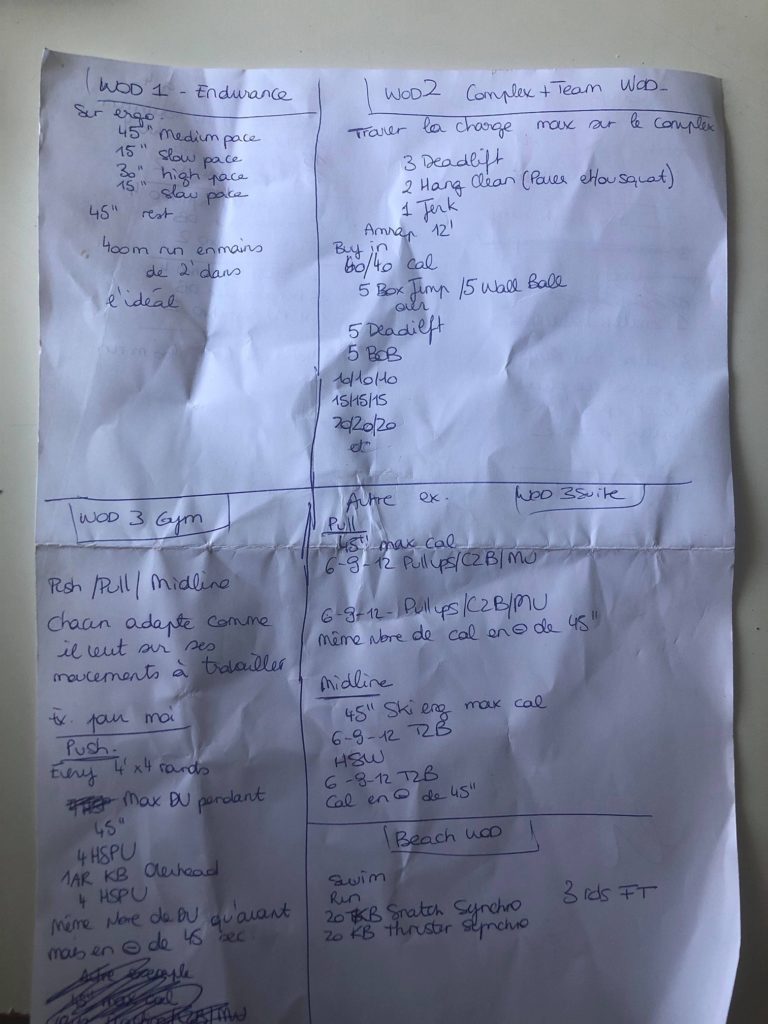 WOD 1 - Endurance
Sur ergo
45" medium pace
15" slow pace
30" high pace
15" slow pace
45" rest
400m run en mains
de 2' dans
l'idéal
WOD2 Complex + Team WOD-
Trouver la charge max sur le complex
3 Deadlift
2 Hang Clean (Power et/ou squat)
1 Jerk
Amrap 12'
Buy in
40/40 cal
5 Box Jump /5 Wall Ball
over
5 Deadlift
5 BOB
10/10/10
15/15/15
20/20/20
etc
WOD 3 Gym
Push /Pull/ Midline
Chacun adapte comme
il veut sur ses
mouvements à travailler
Ex. pour moi
Push.
Every 4' x4 rounds
Max DU pendant
45"
4 HSPU
1AR KB Overhead
4 HSPU
Même Nbre de DU qu'avant
mais en ⊖ de 45 sec.
Autre exemple
45" max cal
Autre ex. WOD 3 Suite
Pull
45" max cal
6-9-12 Pull ups/C2B/MU
6-9-12- Pull ups/C2B/MU
même Nbre de cal en ⊖ de 45"
Midline
45" Ski erg max cal
6-9-12 T2B
HSW
6-9-12 T2B
Cal en ⊖ de 45"
Beach WOD
Swim
Run
20 KB Snatch Synchro
20 KB thruster Synchro
3 rds FT